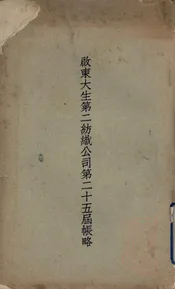 啟東大生第二紡織公司第二十五屆帳略